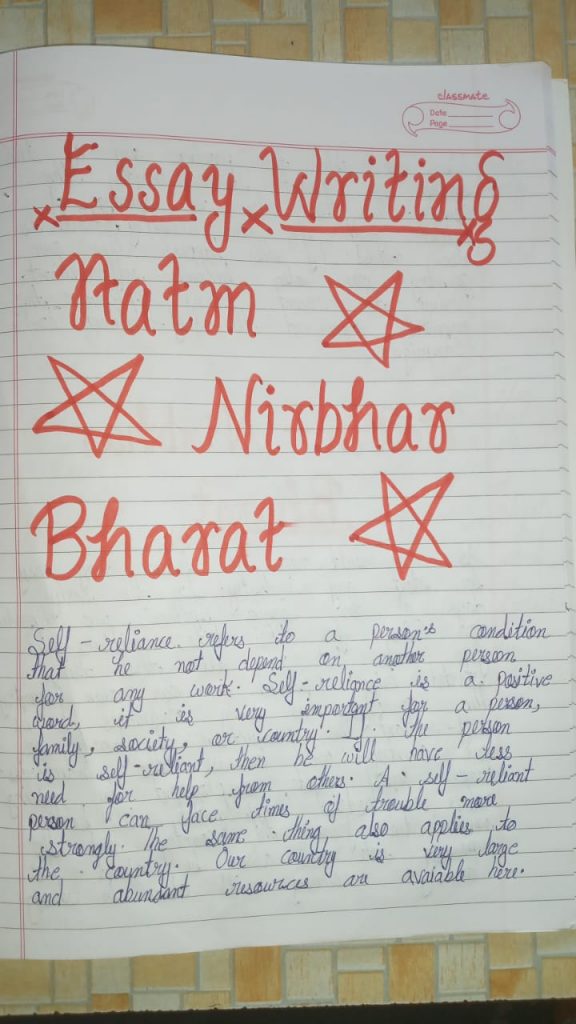 classmate
Date
Page
Essay Writing
Aatm
Nirbhar
Bharat
Self-reliance refers to a person's condition
that he not depend on another person
for any work. Self-reliance is a positive
word, it is very important for a person,
family, society, or country. If the person
is self-reliant, then he will have less
need for help from others. A self-reliant
person can face times of trouble more
strongly. The same thing also applies to
the country. Our country is very large
and abundant resources are avaiable here.